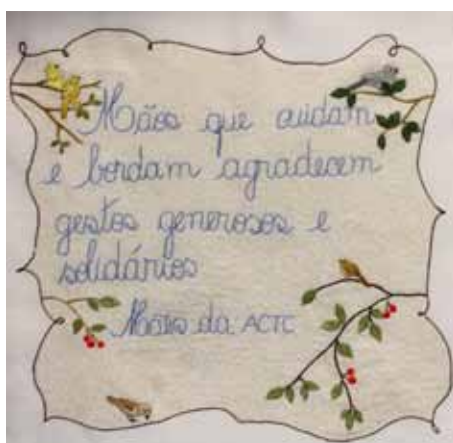 Mãos que cuidam
e bordam agradecem
gestos generosos e
solidários
Mães da ACTC